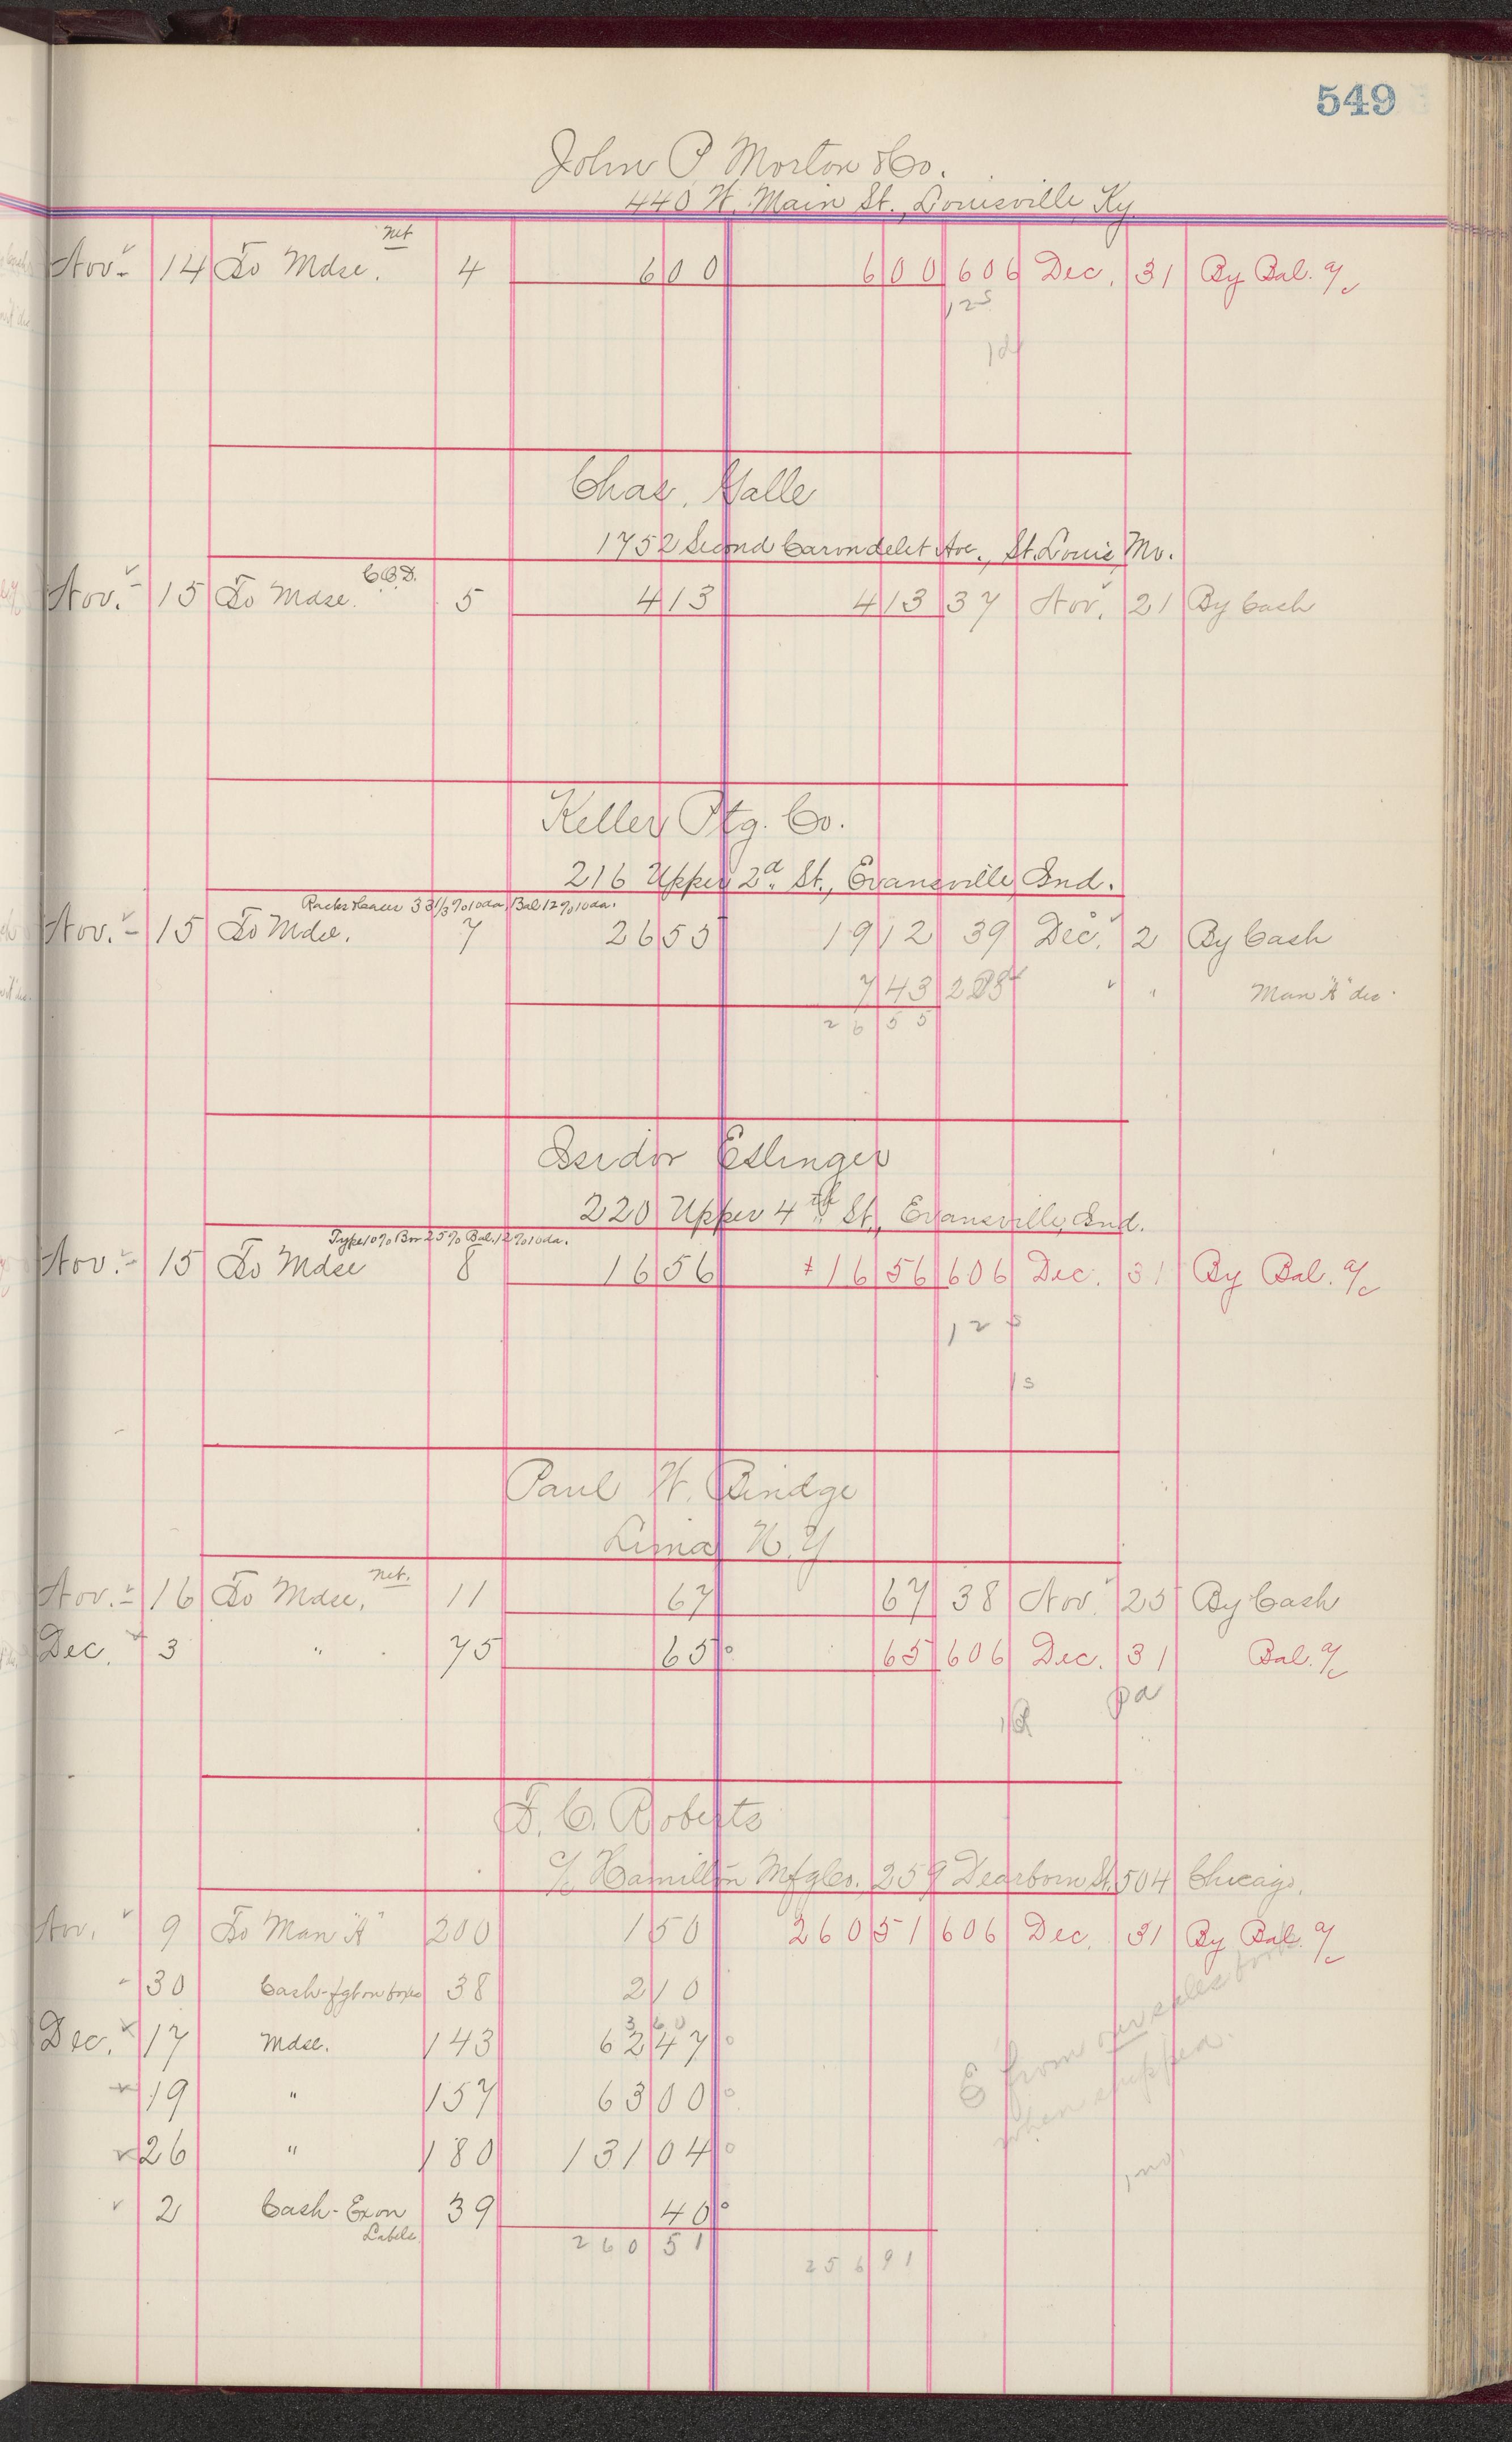 549
John P Morton & Co.
440 W. Main St., Louisville, Ky
Net
Nov. 14 To Mdse. 4 6 00 6 00 606 Dec. 31 By Bal. a/c
125
Chas. Halle
1752 Second Carondelet Ave., St. Louis, Mo.
C.O.D.
Nov. 15 To Mdse. 5 4 13 4 13 37 Nov. 21 By Cash
Keller Ptg. Co.
216 Upper 2d. St., Evansville, Ind.
33 1/3 % 10 da, Bal 12 % 10 da.
Nov. 15 To Mdse. 7 26 55 19 12 39 Dec. 2 By Cash
7 43 " " Man "A" dec
26 55
Isidor Eslinger
220 Upper 4th St., Evansville, Ind.
Type 10% Bor 25% Bal. 12% 10 da.
Nov. 15 To Mdse 8 16 56 16 56 606 Dec. 31 By Bal. a/c
125
Paul W. Bindge
Lima N.Y
Net.
Nov. 16 To Mdse. 11 67 67 38 Nov. 25 By Cash
Dec. 3 " 75 65 65 606 Dec. 31 Bal. a/c
pd
F. C. Roberts
c/o Hamilton Mfg Co., 259 Dearborn St. 504 Chicago.
Nov. 9 To Man "A" 200 1 50 260 51 606 Dec. 31 By Bal. a/c
30 Cash-fgt on boxes 38 2 10
3 60
Dec. 17 Mdse. 143 62 47
19 " 157 63 00
26 " 180 131 04
2 Cash-Ex on 39 40
Labels
260 51
256 91
E from our sales book
when shipped.